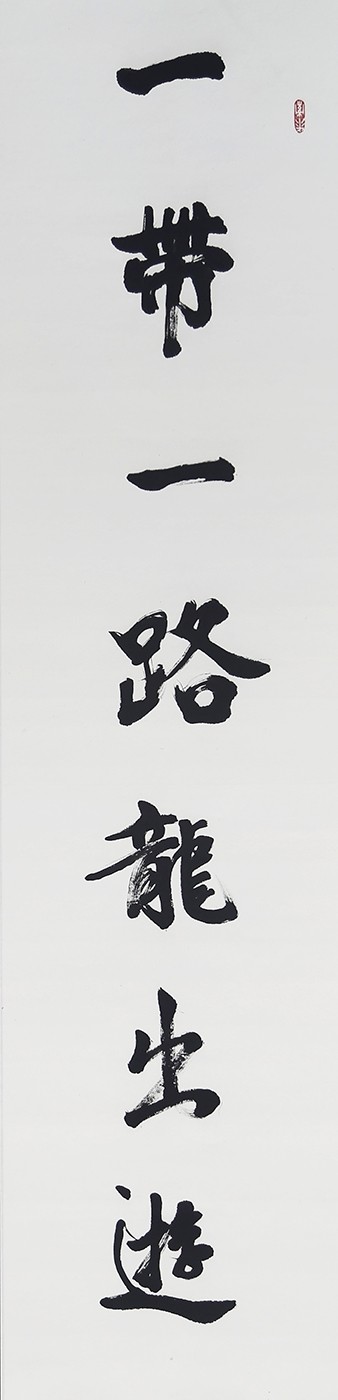 一帶一路龍出遊